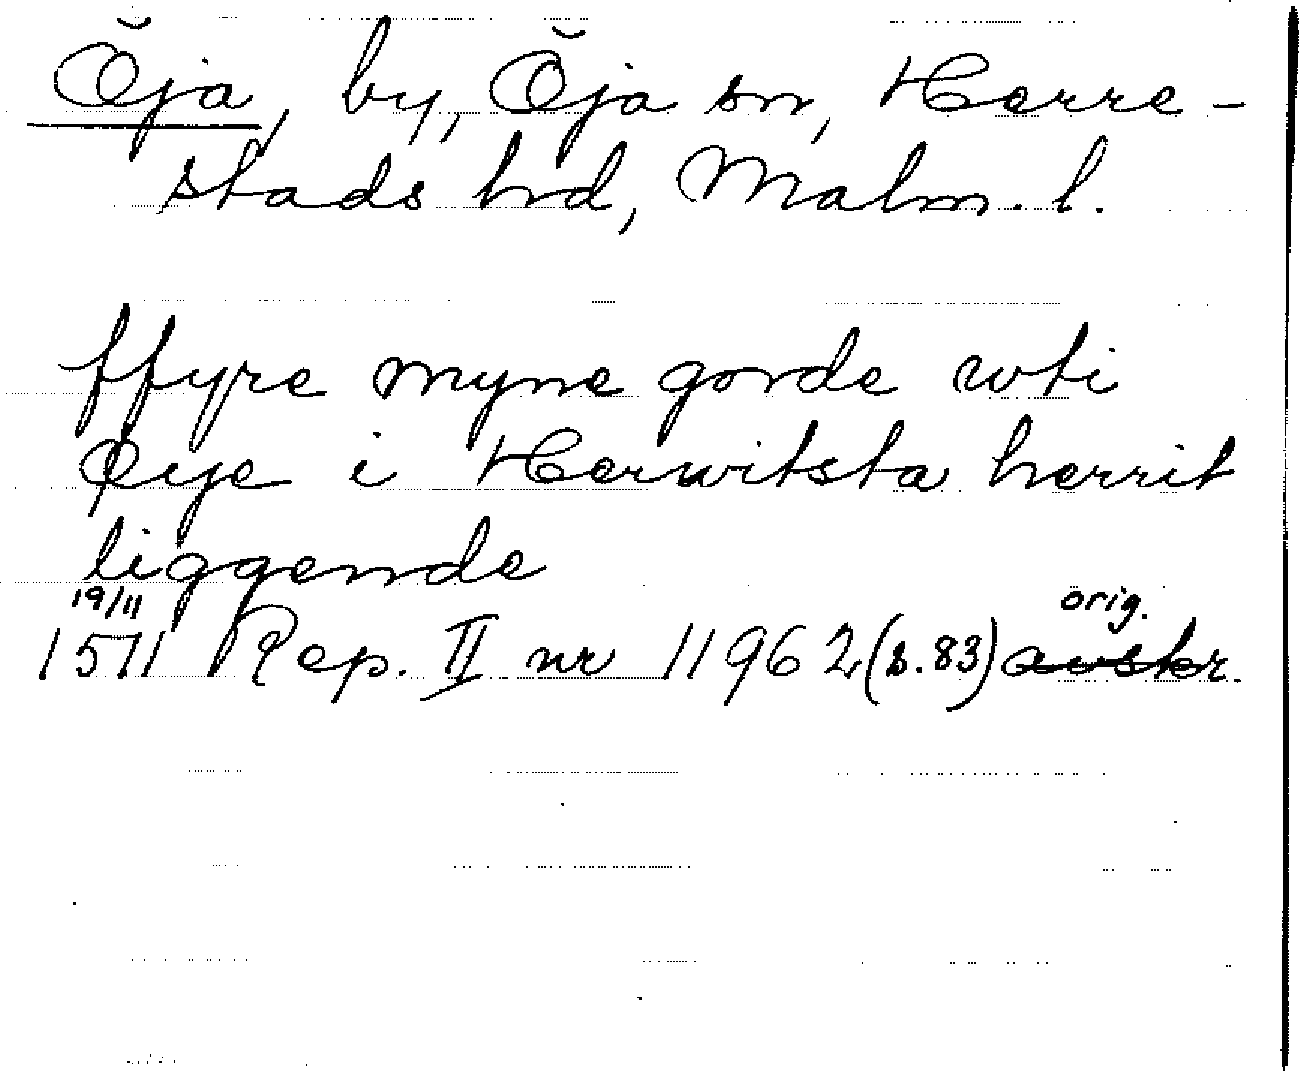 Öja, by, Öja sn, Herre-
stads hd, Malm. l.
ffyre myne gorde wti
Øye i Herwitsta herrit
liggende
19/11 orig.
1571 Rep. II nr 11962 (s. 83) avskr.